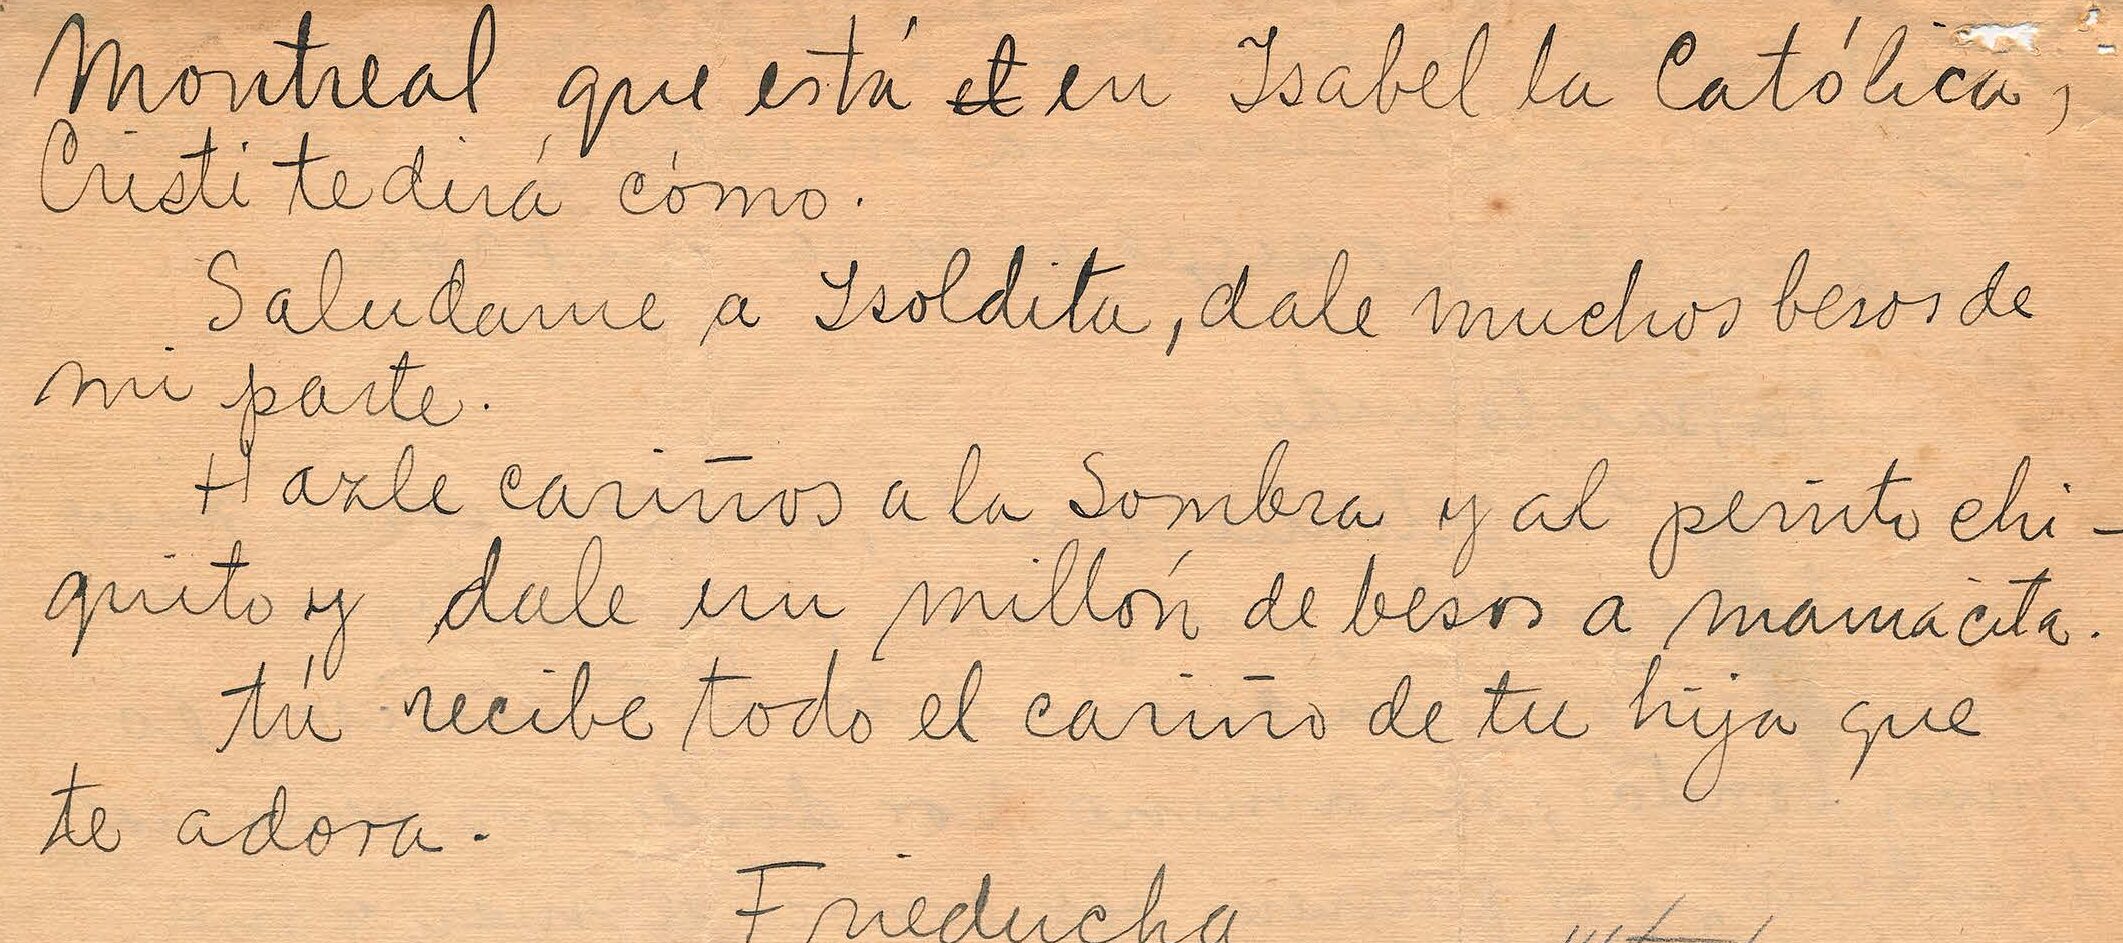 Montreal que está et en Isabel la Católica,
Cristi te dirá cómo.
Saludame a Isoldita, dale muchos besos de
mi parte.
Hazle cariños a la Sombra y al perrito chi-
quito y dale un millón de besos a mamacita.
tú recibe todo el cariño de tu hija que
te adora.
Frieducha